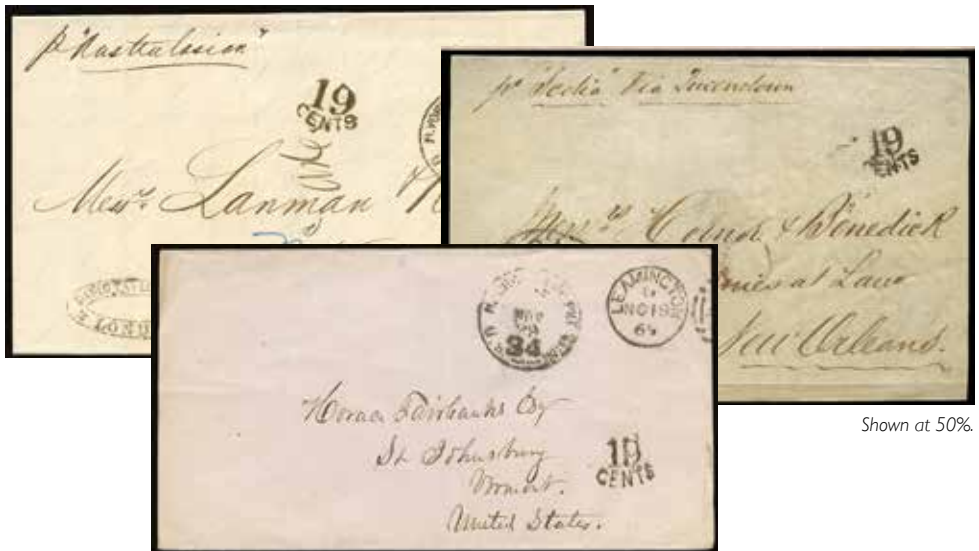 pr "Australasian"
19
CENTS
Messrs. Lanman &
LOND
pr "Scotia" Via Queenstown
19
CENTS
Messrs. & Benedick
at Law
New Orleans.
N. YORK
34
LEAMINGTON
NO 19
69
Horace Fairbanks Esq
St Johnsbury
Vermont.
United States.
19
CENTS
Shown at 50%.